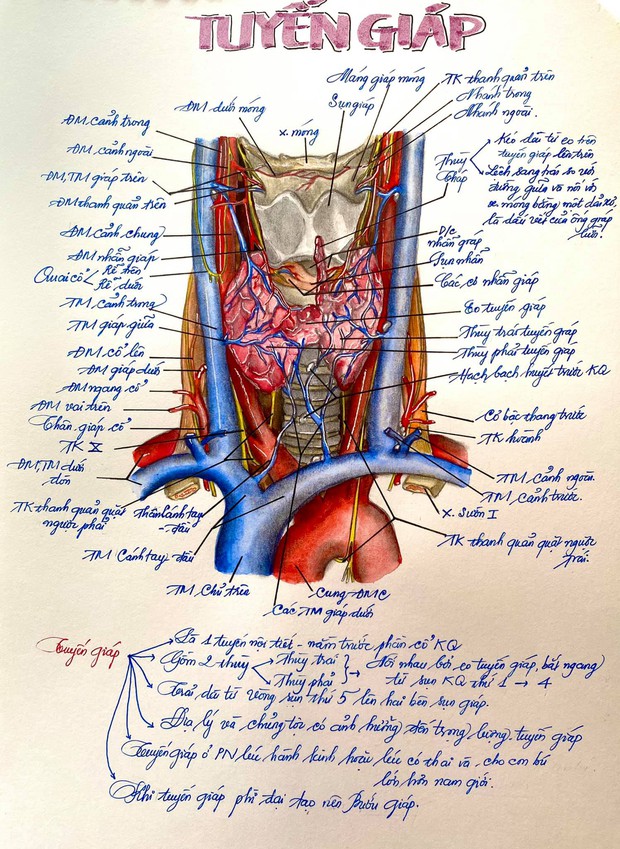 TUYẾN GIÁP
ĐM cảnh trong
ĐM cảnh ngoài
ĐM, TM giáp trên
ĐM thanh quản trên
ĐM cảnh chung
ĐM nhẫn giáp
Quai cổ
Rễ trên
Rễ dưới
TM cảnh trong
TM giáp giữa
ĐM cổ lên
ĐM giáp dưới
ĐM ngang cổ
ĐM vai trên
Thân giáp cổ
TK X
ĐM, TM dưới đòn
TK thanh quản quặt
người phải
Thân cánh tay
- đầu
TM Cánh tay đầu
TM Chủ trên
ĐM dưới móng
x. móng
Sụn giáp
Màng giáp móng
TK thanh quản trên
Nhánh trong
Nhánh ngoài.
Thùy
tháp
Kéo dài từ eo trên
tuyến giáp lên trên
Lệch sang trái so với
đường giữa và nối với
x. móng bằng một dải xơ,
là dấu vết của ống giáp
lưỡi.
D/c
nhẫn giáp
Sụn nhẫn
Các cơ nhẫn giáp
Eo tuyến giáp
Thùy trái tuyến giáp
Thùy phải tuyến giáp
Hạch bạch huyết trước KQ
Cơ bậc thang trước
TK hoành
TM cảnh ngoài.
TM cảnh trước.
x. Sườn I
TK thanh quản quặt người
trái.
Cung ĐMC
Các TM giáp dưới
Tuyến giáp
Là 1 tuyến nội tiết - nằm trước phần cổ KQ
Gồm 2 thùy
Thùy trái
Thùy phải
Nối nhau bởi eo tuyến giáp, bắt ngang
từ sụn KQ thứ 1 → 4
Trải dài từ vòng sụn thứ 5 lên hai bên sụn giáp.
Địa lý và chủng tộc có ảnh hưởng đến trọng lượng tuyến giáp
Tuyến giáp ở PN lúc hành kinh hoặc lúc có thai và cho con bú
lớn hơn nam giới.
Khi tuyến giáp phì đại tạo nên Bướu giáp.